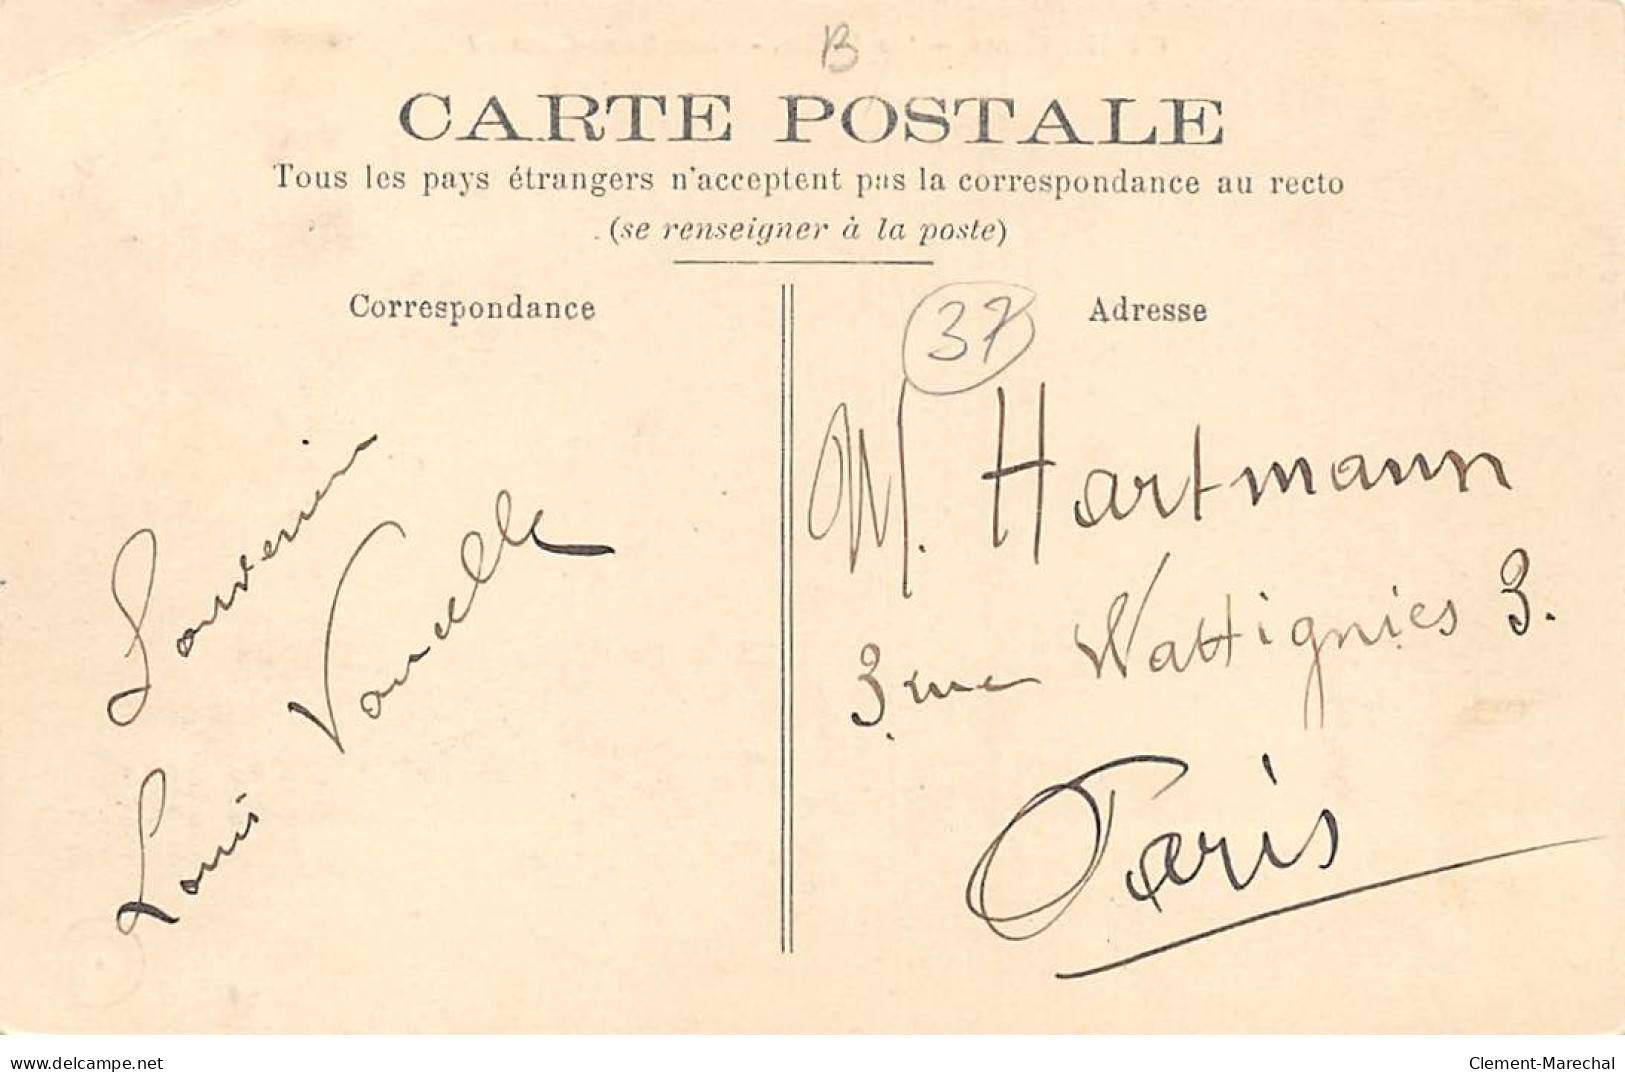 B
CARTE POSTALE
Tous les pays étrangers n'acceptent pas la correspondance au recto
(se renseigner à la poste)
Correspondance
Souvenir
Louis
37
Adresse
M. Hartmann
3 rue Wattignies 3.
Paris
www.delcampe.net
Clement-Marechal